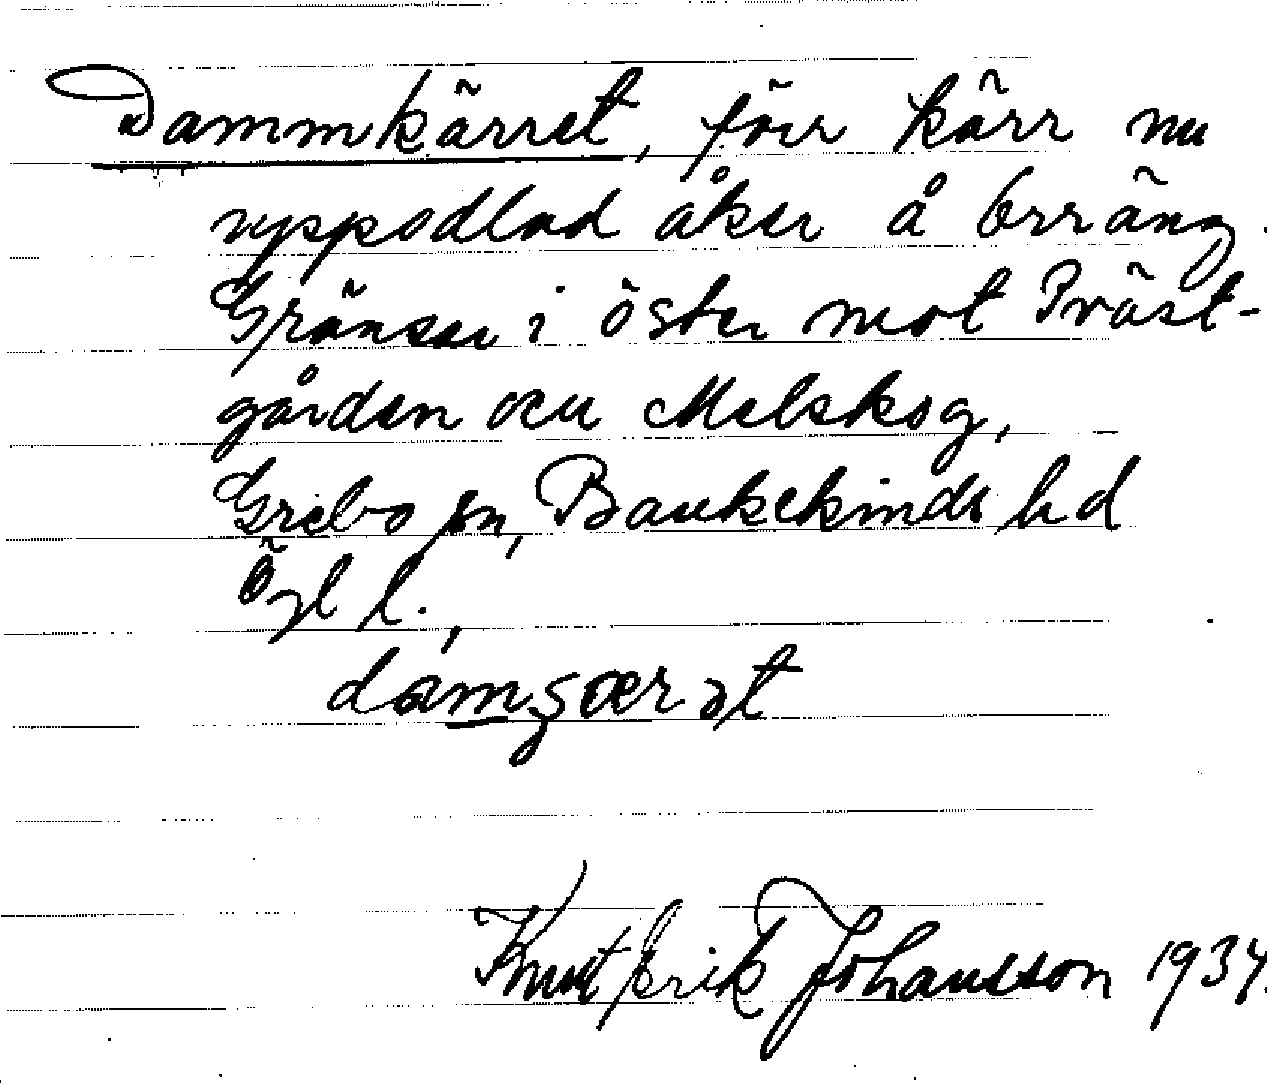 Dammkärret, förr kärr nu
uppodlad åker å Orräng.
Gränsar i öster mot Präst-
gården och Melskog,
Grebo sn, Bankekinds hd
Ögl l.,
Knut Erik Johansson 1934.